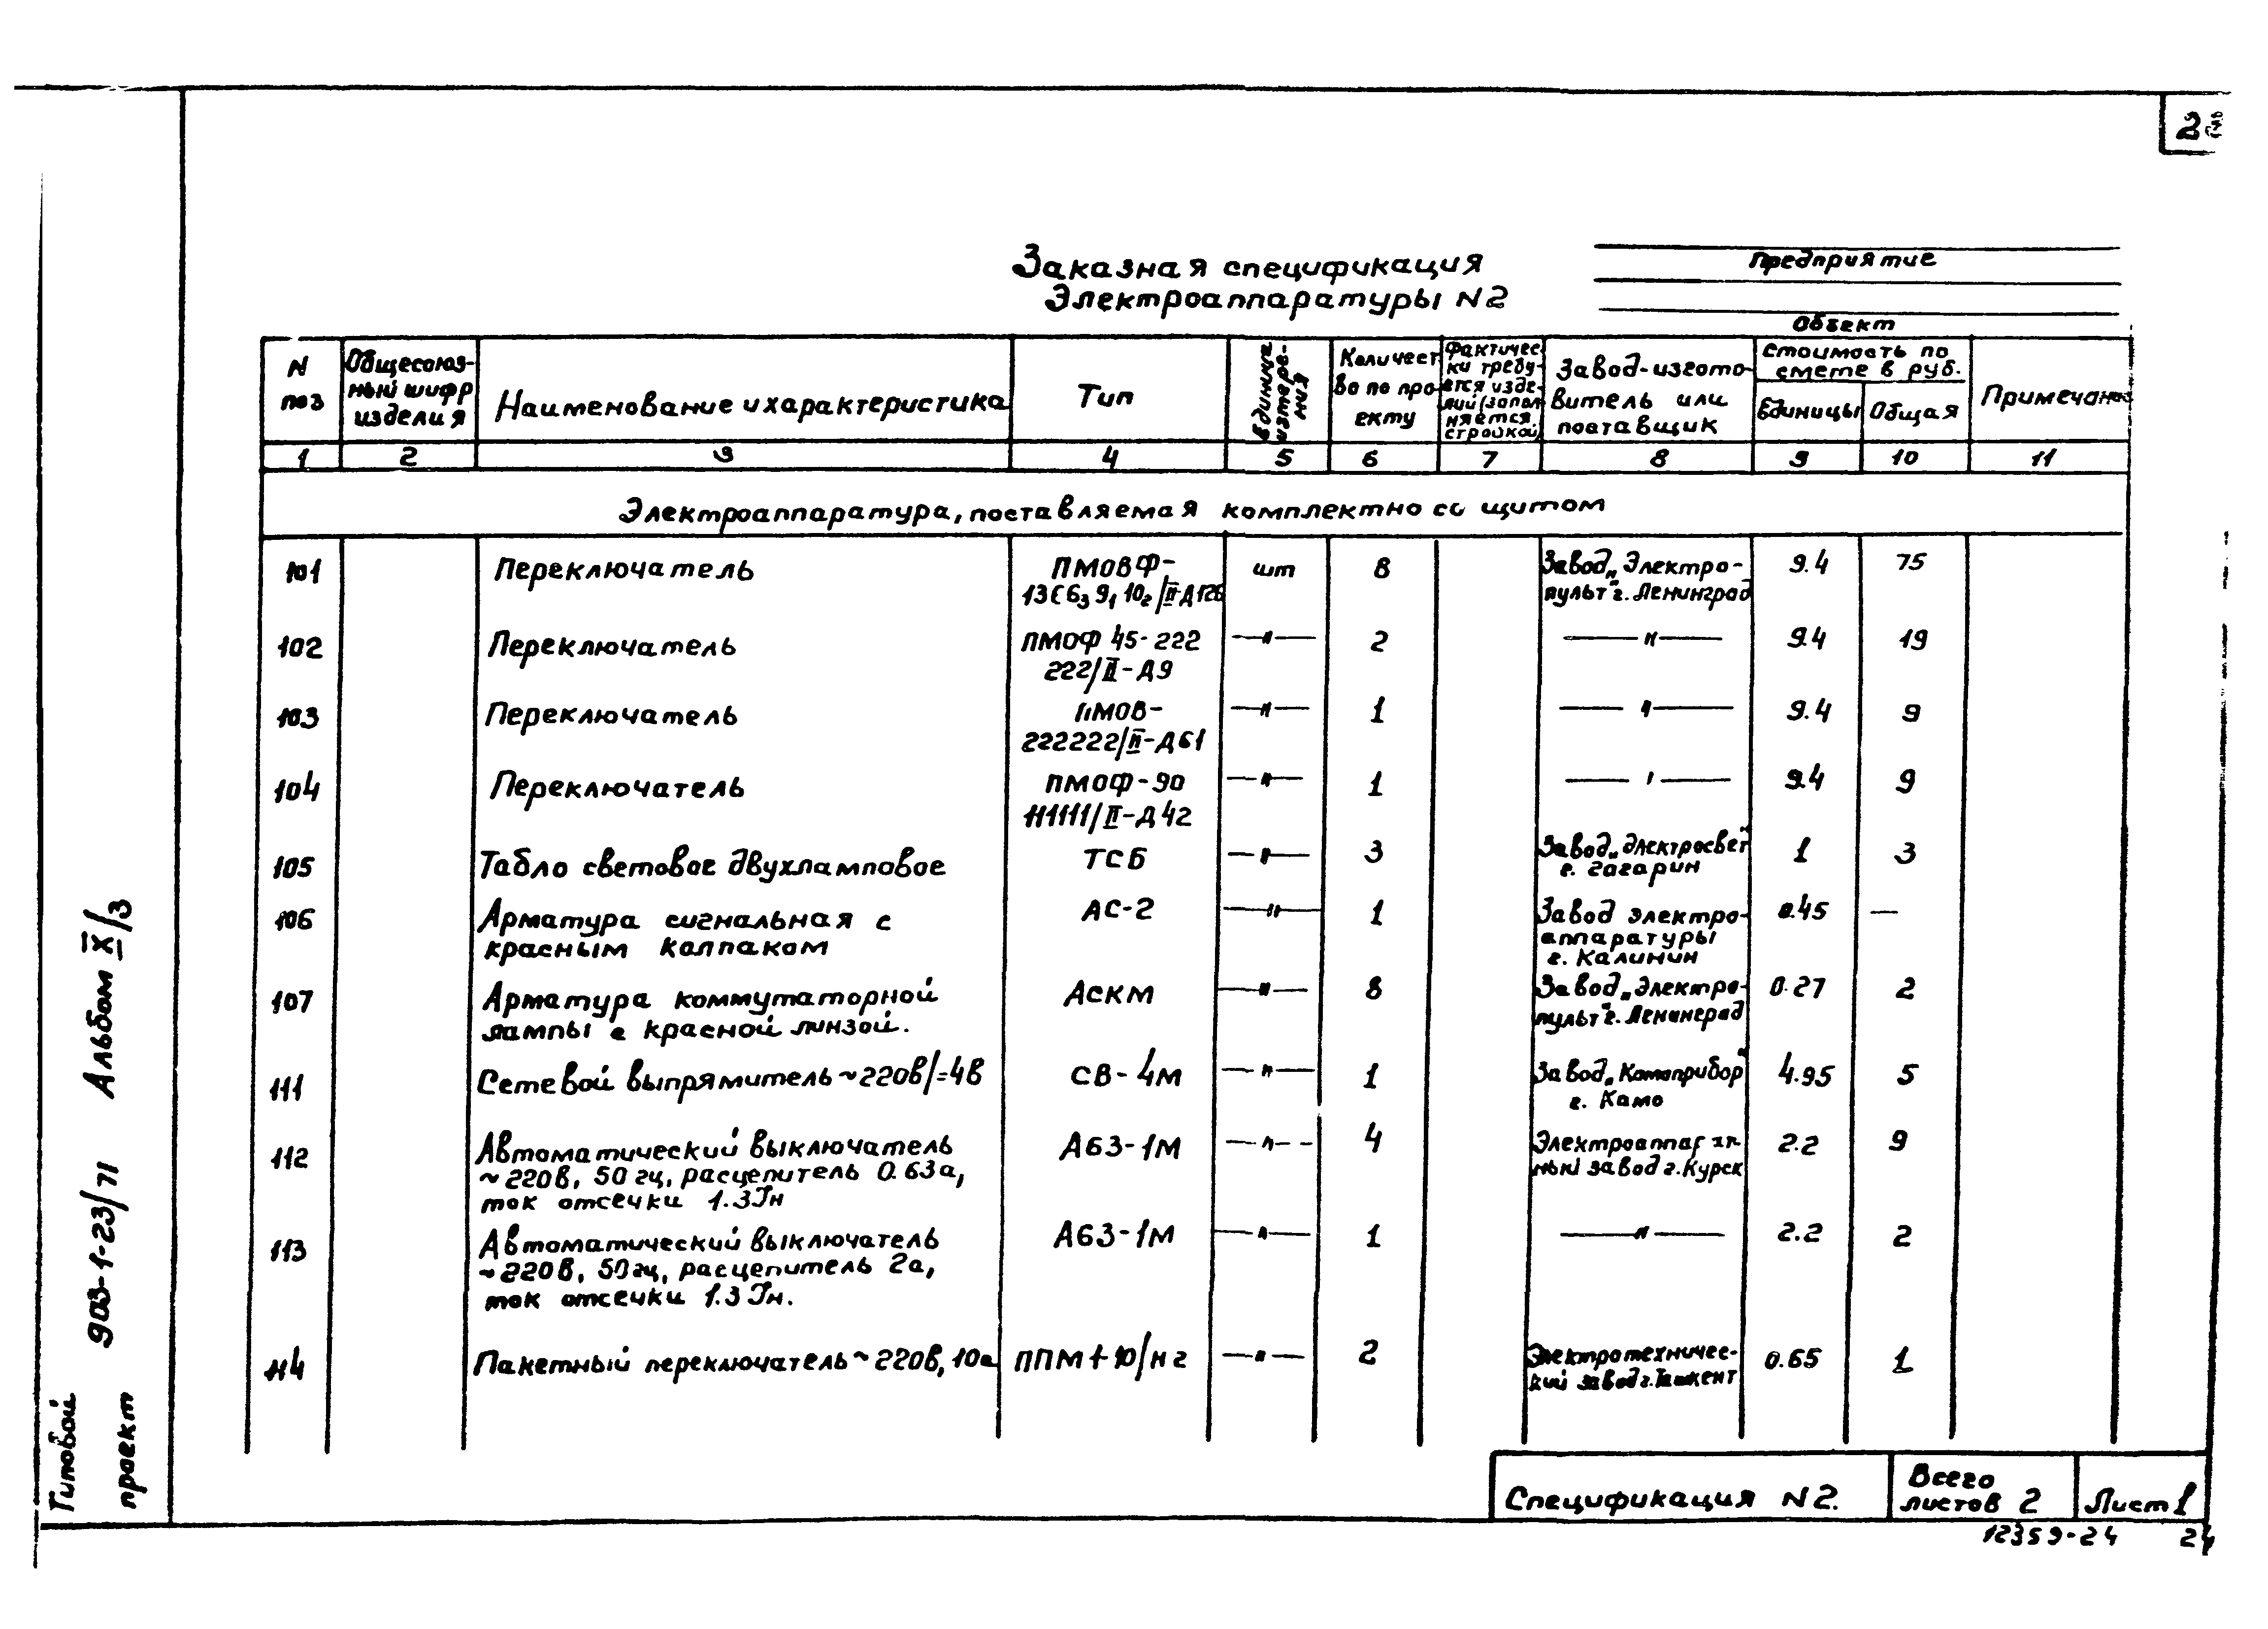 Заказная спецификация
Электроаппаратуры N2
Предприятие
Объект
N поз
Общесоюзный шифр изделия
Наименование и характеристика
Тип
Единица измерения
Количест во по проекту
Фактически требуется изделий (заполняется стройкой)
Завод-изготовитель или поставщик
Стоимость по смете в руб.
Единицы
Общая
Примечание
1 2 3 4 5 6 7 8 9 10 11
Электроаппаратура, поставляемая комплектно со щитом
101 Переключатель ПМОВФ- шт 8 Завод „Электро- 9.4 75
пульт" г. Ленинград
102 Переключатель ПМОФ 45-222 —"— 2 —"— 9.4 19
222/II-Д9
103 Переключатель ПМОВ- —"— 1 —"— 9.4 9
222222/II-Д61
104 Переключатель ПМОФ-90 —"— 1 —"— 9.4 9
111111/II-Д42
105 Табло световое двухламповое ТСБ —"— 3 Завод „Электросвет" 1 3
г. Гагарин
106 Арматура сигнальная с АС-2 —"— 1 Завод электро- 0.45 —
красным колпаком аппаратуры
г. Калинин
107 Арматура коммутаторной АСКМ —"— 8 Завод „Электро- 0.27 2
лампы с красной линзой. пульт" г. Ленинград
111 Сетевой выпрямитель ~220в/=4в СВ-4м —"— 1 Завод „Камоприбор" 4.95 5
г. Камо
112 Автоматический выключатель А63-1М —"— 4 2.2 9
~220в, 50 гц, расцепитель 0.63а, ный завод г. Курск
ток отсечки 1.3Iн
113 Автоматический выключатель А63-1М —"— 1 —"— 2.2 2
~220в, 50гц, расцепитель 2а,
ток отсечки 1.3Iн.
114 Пакетный переключатель ~220в, 10а ППМ1-10/н2 —"— 2 Электротехничес- 0.65 1
кий завод г. Ташкент
Спецификация N2.
Всего
листов 2
Лист 1
12359-24 24
Типовой
проект 903-1-23/71 Альбом IX/3